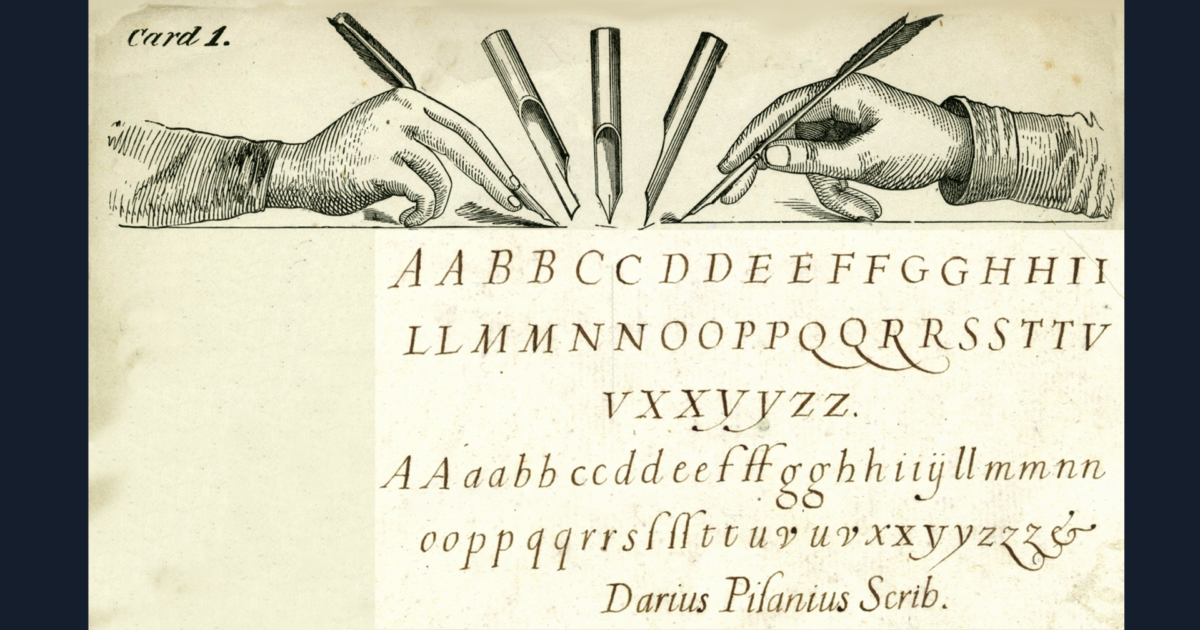 Card 1.
A A B B C C D D E E F F G G H H I I
L L M M N N O O P P Q Q R R S S T T V
V X X y y z z.
A A a a b b c c d d e e f ff g g h h i i ij l l m m n n
o o p p q q r r s ſ ſſ t t u v u v x x y y z z z &
Darius Piſanius Scrib.